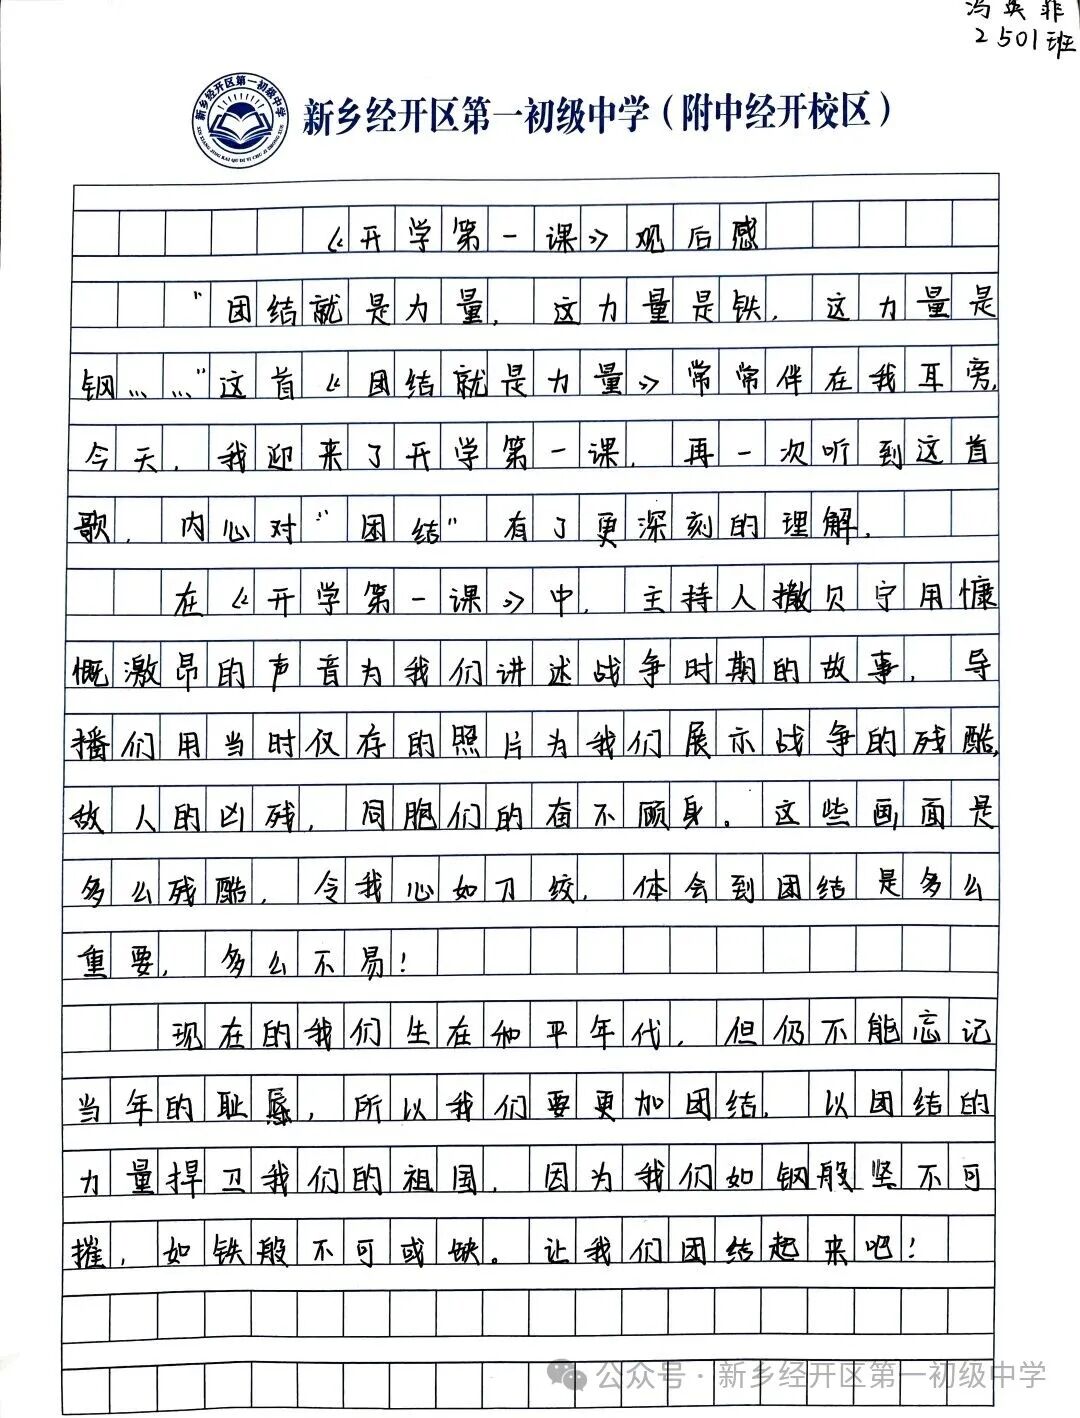 冯英菲
2501班
新乡经开区第一初级中学
XIN XIANG JING KAI QU DI YI CHU JI ZHONG XUE
新乡经开区第一初级中学（附中经开校区）
《开学第一课》观后感
“团结就是力量，这力量是铁，这力量是
钢……”这首《团结就是力量》常常伴在我耳旁，
今天，我迎来了开学第一课，再一次听到这首
歌，内心对“团结”有了更深刻的理解．
在《开学第一课》中，主持人撒贝宁用慷
慨激昂的声音为我们讲述战争时期的故事，导
播们用当时仅存的照片为我们展示战争的残酷，
敌人的凶残，同胞们的奋不顾身。这些画面是
多么残酷，令我心如刀绞，体会到团结是多么
重要，多么不易！
现在的我们生在和平年代，但仍不能忘记
当年的耻辱，所以我们要更加团结，以团结的
力量捍卫我们的祖国，因为我们如钢般坚不可
摧，如铁般不可或缺。让我们团结起来吧！
公众号·新乡经开区第一初级中学